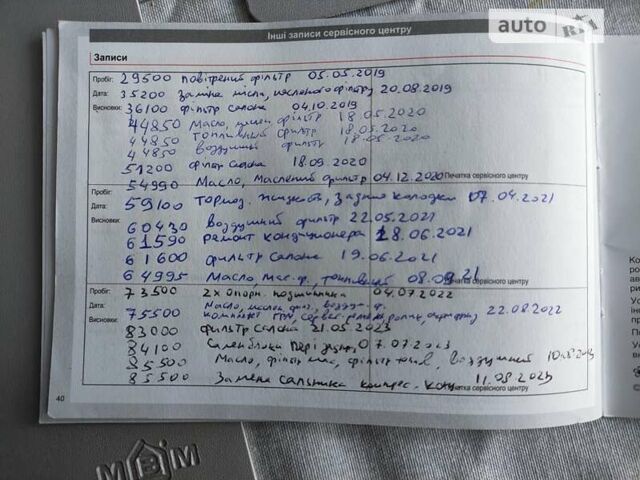 auto RIA
Інші записи сервісного центру
Записи
Пробіг: 29500 повітряний фільтр 05.05.2019
Дата: 35200 заміна масла, масленого фільтру 20.08.2019
Висновки: 36100 фільтр салона 04.10.2019
44850 Масло, фильтр 18.05.2020
44850 топливный фильтр 18.05.2020
44850 воздушний фильтр 18.05.2020
51200 фільтр салона 18.09.2020
54990 Масло, Масленый фильтр 04.12.2020
Печатка сервісного центру
Пробіг: 59100 тормоз. жидкость, задние колодки 07.04.2021
Дата:
Висновки: 60430 воздушний фильтр 22.05.2021
61590 ремонт кондиционера 18.06.2021
61600 фильтр салона 19.06.2021
64995 Масло, мас. ф, топливний 08.09.21
Печатка сервісного центру
Пробіг: 73500 2х опорн. подшипника 04.07.2022
Дата: Масло,
Висновки: 75500 комплект ГРМ, 22.08.2022
83000 фильтр салона 21.05.2023
84100 Саленблоки 07.07.2023
85500 Масло, фільтр мас, фільтр топл, воздушний
85500 Замена сальника компрес. конд. 11.08.2023
Печатка сервісного центру
40